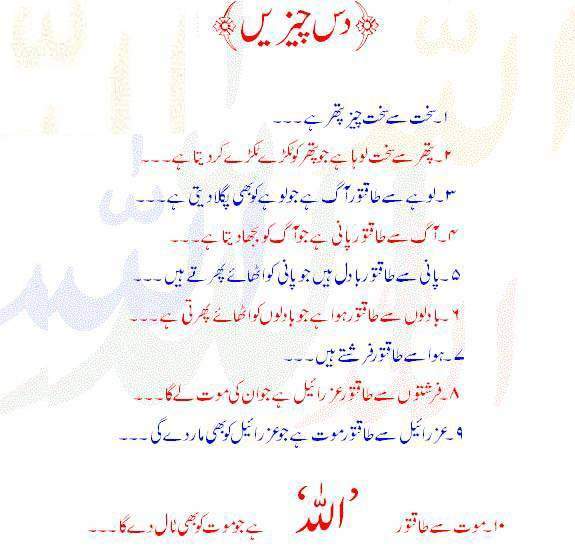 ﴿دس چیزیں﴾
۱۔سخت سے سخت چیز پتھر ہے ۔۔۔
۲۔پتھر سے سخت لوہا ہے جو پتھر کو ٹکڑے ٹکڑے کر دیتا ہے۔۔۔۔
۳۔لوہے سے طاقتور آگ ہے جو لوہے کو بھی پگلا دیتی ہے۔۔۔
۴۔آگ سے طاقتور پانی ہے جو آگ کو بجھا دیتا ہے۔۔۔۔
۵۔پانی سے طاقتور بادل ہیں جو پانی کو اٹھائے پھرتے ہیں ۔۔۔۔
۶۔بادلوں سے طاقتور ہوا ہے جو بادلوں کو اٹھائے پھرتی ہے ۔۔۔۔
۷۔ہوا سے طاقتور فرشتے ہیں۔۔۔۔
۸۔فرشتوں سے طاقتور عزرائیل ہے جو ان کی موت لے گا۔۔۔۔
۹۔عزرائیل سے طاقتور موت ہے جو عزرائیل کو بھی مار دے گی ۔۔۔۔
۱۰۔موت سے طاقتور ’اللہ‘ ہے جو موت کو بھی ٹال دے گا ۔۔۔۔